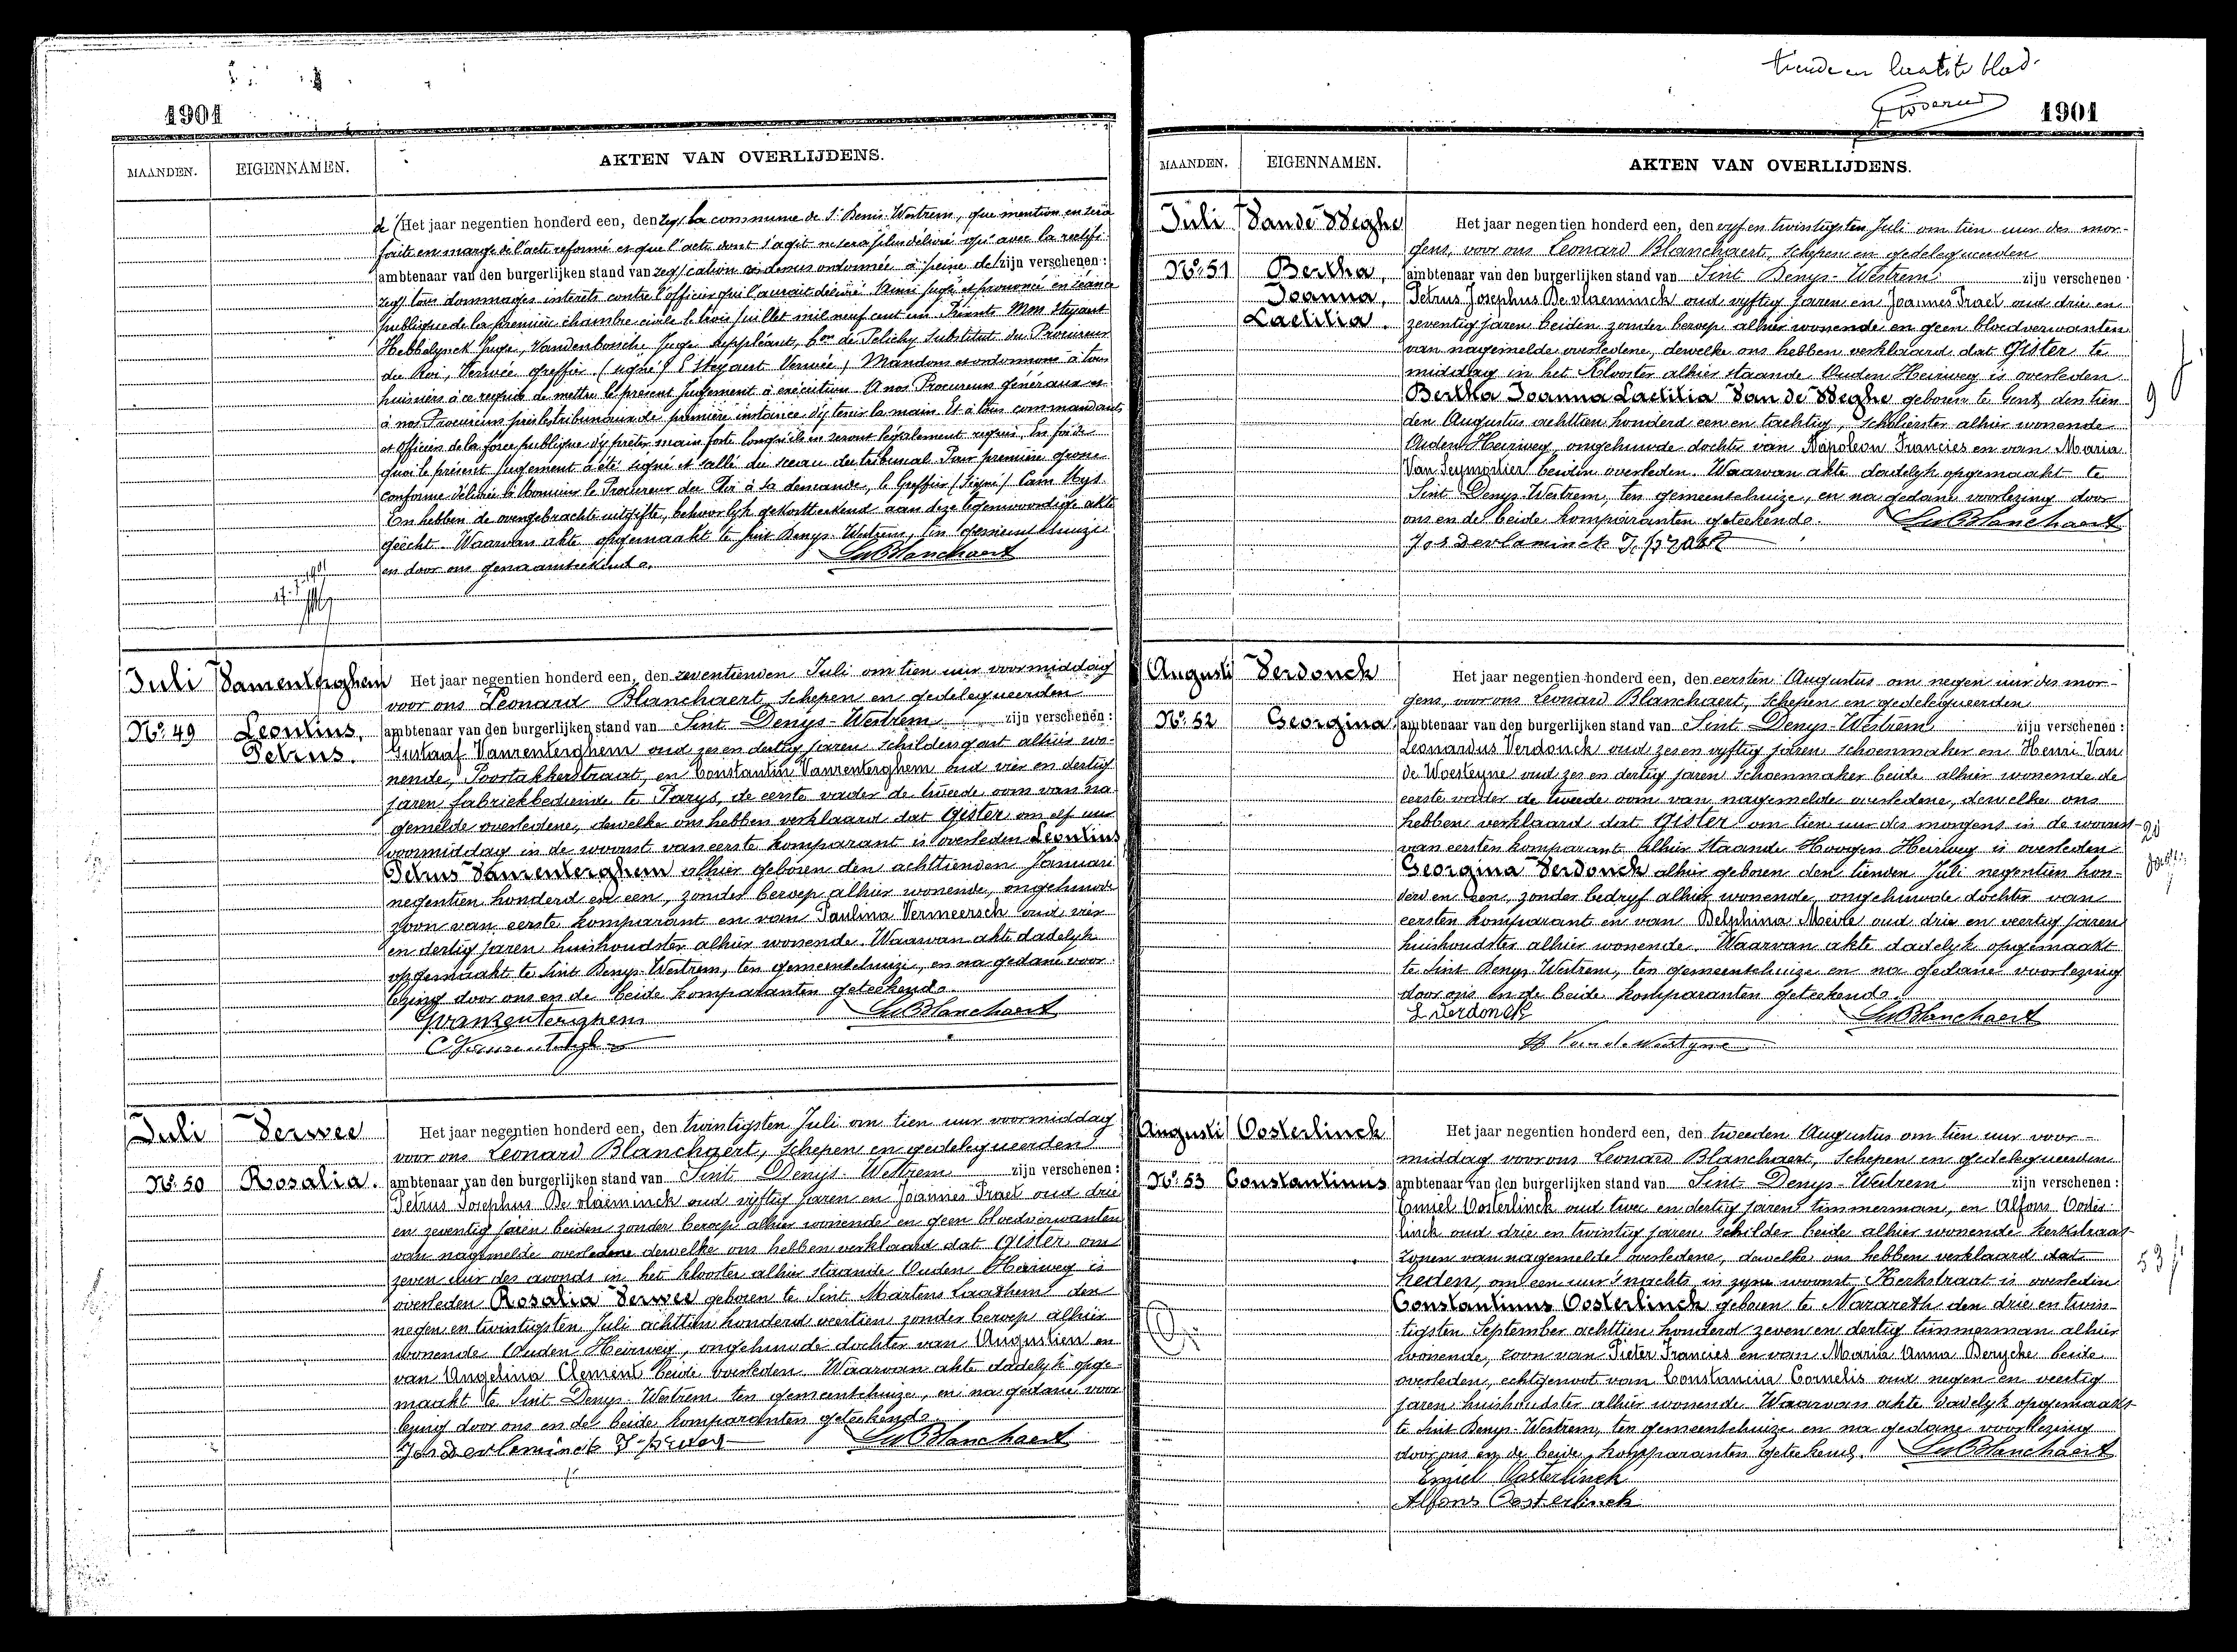 1901
MAANDEN.
EIGENNAMEN.
AKTEN VAN OVERLIJDENS.
de (Het jaar negentien honderd een, den zeg) la commune de St Denis-Westrem, que mention en sera
faite en marge de l'acte reformé et que l'acte dont s'agit ne sera plus délivré qu'avec la rectifi-
ambtenaar van den burgerlijken stand van zeg) cation ci dessus ordonnée à peine de (zijn verschenen:
zeg) tous dommages intérêts contre l'officier qui l'aurait délivré. Ainsi jugé et prononcé en séance
publique de la première chambre civile le trois juillet mil neuf cent un. Présents Mm Steyaert
Hebbelynck Juge, Vandenbossche Juge suppléant, bon de Pelichy Substitut du Procureur
du Roi, Verwée greffier (signé) E Steyaert Verwée) Mandons et ordonnons à tous
huissiers à ce requis de mettre le présent Jugement à exécution. A nos Procureurs généraux et
à nos Procureurs près les tribunaux de première instance d'y tenir la main. Et à tous commandants
et Officiers de la force publique d'y prêter main forte lorsqu'ils en seront légalement requis. En foi de
quoi le présent jugement a été signé et scellé du sceau du tribunal. Pour première grosse
conforme délivrée à Monsieur le Procureur du Roi à sa demande, le Greffier (Signé) Cam Uyt
En hebben de overgebrachte uitgifte, behoorlyk gekortteekend aan deze tegenwoordige akte
gehecht. Waarvan akte opgemaakt te Sint Denys-Westrem, ten gemeentehuize
en door ons genaamteekend.
Le Blanchaert
Juli
Vanrenterghem
Het jaar negentien honderd een, den zeventienden Juli om tien uur voormiddag
voor ons Leonard Blanchaert, Schepen en gedelegueerden
No. 49
Leontius,
ambtenaar van den burgerlijken stand van Sint Denys-Westrem zijn verschenen:
Petrus.
Gustaaf Vanrenterghem oud zes en dertig jaren schildersgast alhier wo-
nende, Poortakkerstraat, en Constantin Vanrenterghem oud vier en dertig
jaren fabriekbediende te Parys, de eerste vader de tweede oom van na-
gemelde overledene, dewelke ons hebben verklaard dat Gister om elf uur
voormiddag in de woonst van eerste komparant is overleden Leontius
Petrus Vanrenterghem alhier geboren den achttienden Januari
negentien honderd en een, zonder beroep alhier wonende, ongehuwde
zoon van eerste komparant en van Paulina Vermeersch oud vier
en dertig jaren huishoudster alhier wonende. Waarvan akte dadelyk
opgemaakt te Sint Denys-Westrem, ten gemeentehuize, en na gedane voor-
lezing door ons en de beide komparanten geteekend.
GVanrenterghem
Le Blanchaert
C Vanrenterghem
Juli
Verwee
Het jaar negentien honderd een, den twintigsten Juli om tien uur voormiddag
voor ons Leonard Blanchaert, Schepen en gedelegueerden
No. 50
Rosalia.
ambtenaar van den burgerlijken stand van Sint Denys-Westrem zijn verschenen:
Petrus Josephus De vlaeminck oud vyftig jaren en Joannes Praet oud drie
en zeventig jaren beiden zonder beroep alhier wonende en geen bloedverwanten
van nagemelde overledene dewelke ons hebben verklaard dat Gister om
zeven uur des avonds in het klooster alhier staande Ouden Heirweg is
overleden Rosalia Verwee geboren te Sint Martens Laathem den
negen en twintigsten Juli achttien honderd veertien zonder beroep alhier
wonende Ouden Heirweg, ongehuwde dochter van Augustien en
van Angelina Clement beide overleden. Waarvan akte dadelyk opge-
maakt te Sint Denys-Westrem ten gemeentehuize, en na gedane voor-
lezing door ons en de beide komparanten geteekend.
Jos Devlaminck J. praet
Le Blanchaert
laatste blad.
1901
MAANDEN.
EIGENNAMEN.
AKTEN VAN OVERLIJDENS.
Juli
Van de Weghe
Het jaar negentien honderd een, den vyf en twintigsten Juli om tien uur des mor-
gens, voor ons Leonard Blanchaert, Schepen en gedelegueerden
No. 51
Bertha,
ambtenaar van den burgerlijken stand van Sint Denys-Westrem zijn verschenen:
Joanna,
Petrus Josephus De vlaeminck oud vyftig jaren en Joannes Praet oud drie en
Laetitia.
zeventig jaren beiden zonder beroep alhier wonende en geen bloedverwanten
van nagemelde overledene, dewelke ons hebben verklaard dat Gister te
middag in het Klooster alhier staande Ouden Heirweg is overleden
Bertha Joanna Laetitia Van de Weghe geboren te Gent, den tien
den Augustus achttien honderd een en tachtig, scholierster alhier wonende
Ouden Heirweg, ongehuwde dochter van Napoleon Francies en van Maria
Van Seymortier beiden overleden. Waarvan akte dadelyk opgemaakt te
Sint Denys-Westrem, ten gemeentehuize, en na gedane voorlezing door
ons en de beide komparanten geteekend.
Le Blanchaert
Jos Devlaminck J. praet
Augusti
Verdonck
Het jaar negentien honderd een, den eersten Augustus om negen uur des mor-
gens, voor ons Leonard Blanchaert, Schepen en gedelegueerden
No. 52
Georgina.
ambtenaar van den burgerlijken stand van Sint Denys-Westrem zijn verschenen:
Leonardus Verdonck oud zes en vyftig jaren schoenmaker en Henri Van
de Woesteyne oud zes en dertig jaren schoenmaker beide alhier wonende de
eerste vader de tweede oom van nagemelde overledene, dewelke ons
hebben verklaard dat Gister om tien uur des morgens in de woonst
van eersten komparant alhier staande Hoogen Heirweg is overleden
Georgina Verdonck alhier geboren den tienden Juli negentien hon-
derd en een, zonder bedryf alhier wonende, ongehuwde dochter van
eersten komparant en van Delphina Meirle oud drie en veertig jaren
huishoudster alhier wonende. Waarvan akte dadelyk opgemaakt
te Sint Denys-Westrem, ten gemeentehuize en na gedane voorlezing
door ons en de beide komparanten geteekend.
L Verdonck
Le Blanchaert
H Van de Woestyne
Augusti
Oosterlinck
Het jaar negentien honderd een, den tweeden Augustus om tien uur voor-
middag voor ons Leonard Blanchaert, Schepen en gedelegueerden
No. 53
Constantinus
ambtenaar van den burgerlijken stand van Sint Denys-Westrem zijn verschenen:
Emiel Oosterlinck oud twee en dertig jaren timmerman, en Alfons Ooster-
linck oud drie en twintig jaren schilder beide alhier wonende kerkstraat
zonen van nagemelde overledene, dewelke ons hebben verklaard dat
heden, om een uur 's nachts in zyne woonst Kerkstraat is overleden
Constantinus Oosterlinck geboren te Nazareth den drie en twin-
tigsten September achttien honderd zeven en dertig timmerman alhier
wonende, zoon van Pieter Francies en van Maria Anna Derycke beide
overleden, echtgenoot van Constancia Cornelis oud negen en veertig
jaren huishoudster alhier wonende. Waarvan akte dadelyk opgemaakt
te Sint Denys-Westrem, ten gemeentehuize en na gedane voorlezing
door ons en de beide komparanten geteekend.
Le Blanchaert
Emiel Oosterlinck
Alfons Oosterlinck